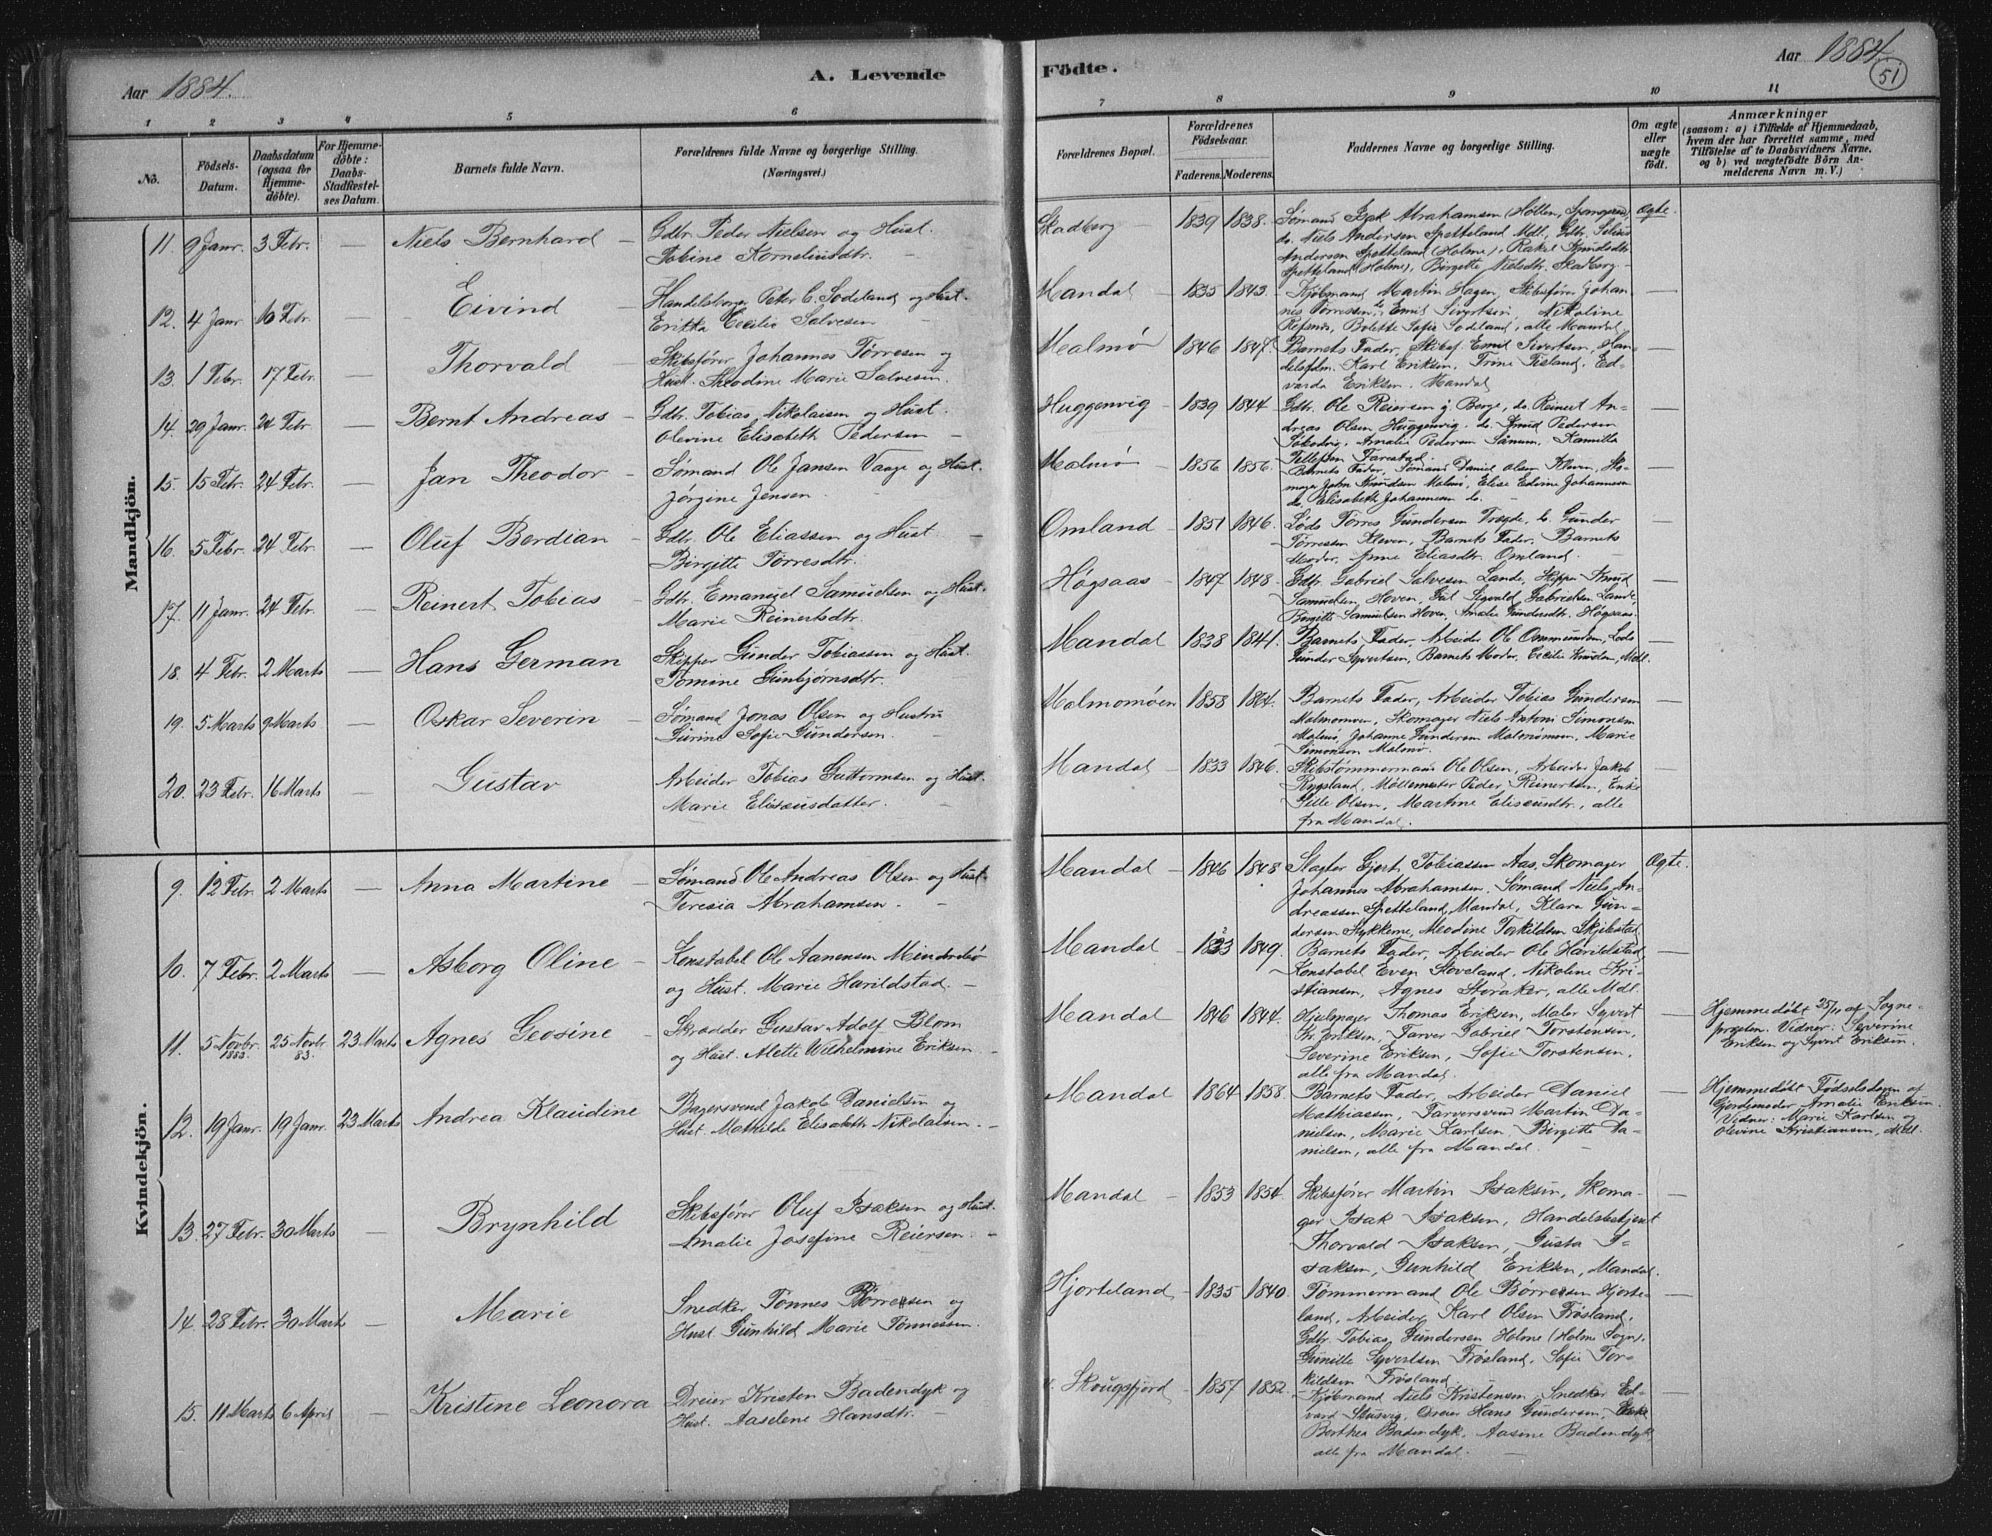 Aar 1884.
A. Levende
Födte.
Aar 1884
51
1 2 3 4 5 6
7 8 9 10 11
No.
Födsels-
Datum.
Daabsdatum
(ogsaa for
Hjemme-
döbte).
For Hjemme-
döbte:
Daabs-
Stadfæstel-
ses Datum.
Barnets fulde Navn.
Forældrenes fulde Navne og borgerlige Stilling.
(Næringsvei.)
Forældrenes Bopæl.
Forældrenes
Födselsaar.
Faderens. Moderens.
Faddernes Navne og borgerlige Stilling.
Om ægte
eller
uægte
födt.
Anmærkninger
(saasom: a) i Tilfælde af Hjemmedaab,
hvem der har forrettet samme, med
Tilföielse af to Daabsvidners Navne,
og b) ved uægtefödte Börn An-
melderens Navn m. V.)
Mandkjön.
11. 9 Janr. 3 Febr. — Niels Bernhard — Gdbr. Peder Nielsen og Hust.
Tobine Korneliusdtr. —
Skadberg — 1839 1838. Sømand Isak Abrahamsen (Holten, Spangereid) Ægte.
do. Niels Andersen Spetteland Mdl., Gdbr. Tobias
Andersen Spetteland (Holme), Rakel Knudsdtr
Spetteland (Holme), Birgitte Nielsdtr. Skadberg —
12. 4 Janr 10 Febr. — Eivind — Handelsborger Peter C. Sodeland og Hust.
Erikka Cecilie Salvesen —
Mandal — 1835 1843. Kjøbmand Martin Hagen, Skibsfører Johan- —
nes Tørressen, do Emil Sivertsen, Nikoline
Refsnes, Bolette Sofie Sodeland, alle Mandal
13. 1 Febr. 17 Febr. — Thorvald — Skibsfører Johannes Tørresen og
Hust. Theodine Marie Salvesen —
Malmø — 1846 1847. Barnets Fader, Skibsf. Emil Sivertsen, Han- —
delsfdm. Karl Eriksen, Trine Tisland, Ed-
varda Eriksen, Mandal
14. 29 Janr. 24 Febr — Bernt Andreas — Gdbr. Tobias Nikolaisen og Hust.
Olevine Elisabeth Pedersen —
Huggenvig — 1839 1844 Gdbr. Ole Reiersen i Berge, do. Reinert An- —
dreas Olsen Huggenvig, do. Knud Pedersen
Amalie Pedersen Sånum, Kamilla
Tellefsen Farestad.
15. 15 Febr. 24 Febr. — Jan Theodor — Sømand Ole Jansen Vaage og Hust.
Jørgine Jensen. —
Malmø — 1856 1856. Barnets Fader, Sømand Daniel Olsen Kleven, Sko- —
mager John Knudsen Malmø, Elise Edvine Johannesen
do, Elisabeth Johannesen do. —
16. 5 Febr. 24 Febr. — Oluf Berdian — Gdbr. Ole Eliassen og Hust
Birgitte Tørresdtr. —
Omland — 1851 1846. Lods Tørres Gundersen Tregde, do. Gunder —
Tørressen Kleven, Barnets Fader, Barnets
Moder, Anne Eliasdtr. Omland. —
17. 11 Janr. 24 Febr. — Reinert Tobias — Gdbr. Emanuel Samuelsen og Hust.
Marie Reinertsdtr. —
Høgsaas — 1847 1848. Gdbr. Gabriel Salvesen Lande, Skipper Knud —
Samuelsen Hoven, Sigvald Gabrielsen Lande,
Birgitte Samuelsen Hoven, Amalie Gundersdtr. Høgsaas.
18. 4 Febr. 2 Marts — Hans German — Skipper Gunder Tobiassen og Hust.
Tomine Gunbjørnsdtr. —
Mandal — 1838 1841. Barnets Fader, Arbeider Ole Ommundsen, Lods —
Gunder Syvertsen, Barnets Moder, Cecilie Knudsen, Mdl.
19. 5 Marts 9 Marts — Oskar Severin — Sømand Jonas Olsen og Hustru
Surine Sofie Gundersen. —
Malmomøen 1858 1864. Barnets Fader, Arbeider Tobias Gundersen —
Malmomoen, Skomager Niels Antoni Simonsen
Malmø, Johanne Gundersen Malmømoen, Marie
Simonsen Malmø.
20. 23 Febr. 16 Marts — Gustav — Arbeider Tobias Guttormsen og Hust.
Marie Elisæusdatter. —
Mandal — 1833 1846. Skibstømmermand Ole Olsen, Arbeider Jakob —
Rugsland, Møllemester Peder Reinertsen, Enke
Olsen, Martine Elisæusdtr., alle
fra Mandal.
Kvindekjön.
9. 12 Febr. 2 Marts — Anna Martine — Sømand Ole Andreas Olsen og Hust.
Teresia Abrahamsen. —
Mandal — 1846 1848 Slagter Gjert Tobiassen Aas, Skomager Ægte.
Johannes Abrahamsen, Sømand Niels An-
dreassen Spetteland, Mandal, Klara Gun-
dersen Stykkene, Medine Torkildsen Skjebstad.
10. 7 Febr. 2 Marts — Asborg Oline — Konstabel Ole Aanensen Mindrebø
og Hust. Marie Harildstad. —
Mandal — 1823 1849. Barnets Fader, Arbeider Ole Harildstad, —
Konstabel Even Stoveland, Nikoline Kri-
stiansen, Agnes Storaker, alle Mdl.
11. 5 Novbr. 1883. 25 Novbr 83. 23 Marts Agnes Geosine — Skrædder Gustav Adolf Blom
og Hust. Alette Wilhelmine Eriksen. —
Mandal — 1846 1844. Hjulmager Thomas Eriksen, Maler Syvert —
Th. Eriksen, Farver Gabriel Torstensen,
Severine Eriksen, Sofie Torstensen,
alle fra Mandal.
Hjemmedøbt 25/11 af Sogne-
præsten. Vidner: Severine
Eriksen og Syvert Eriksen.
12. 19 Janr. 19 Janr. 23 Marts Andrea Klaudine Bagersvend Jakob Danielsen og
Hust. Mathilde Elisabeth Nikolaisen. —
Mandal — 1864 1858. Barnets Fader, Arbeider Daniel —
Mathiassen, Farversvend Martin Da-
nielsen, Marie Karlsen, Birgitte Da-
nielsen, alle fra Mandal. —
Hjemmedøbt Fødselsdagen af
Gjordemoder Amalie Eriksen.
Vidner: Marie Karlsen og
Olevine Kristiansen, Mdl.
13. 27 Febr. 30 Marts — Brynhild Skibsfører Oluf Isaksen og Hust.
Amalie Josefine Reiersen. —
Mandal — 1853 1854. Skibsfører Martin Isaksen, Skoma- —
ger Isak Isaksen, Handelsbetjent
Thorvald Isaksen, Gusta I-
saksen, Gunhild Eriksen, Mandal.
14. 28 Febr. 30 Marts — Marie Snedker Tønnes Børresen og
Hust. Gunhild Marie Tønnessen. —
Hjorteland — 1835 1840. Tømmermand Ole Børresen Hjorte- —
land, Arbeider Karl Olsen Frøsland,
Gdbr. Tobias Gundersen Holme (Holme Sogn),
Gunilde Syvertsen Frøsland, Sofie Tor-
kildsen Frøsland.
15. 11 Marts 6 April — Kristine Leonora Dreier Kristen Badendyk og
Hust. Aaselene Hansdtr. —
Skougsfjord — 1857 1852. Kjøbmand Niels Kristensen, Snedker Ed- —
vard Stusvig, Dreier Hans Gundersen, Enke
Berthea Badendyk, Aasine Badendyk,
alle fra Mandal. —